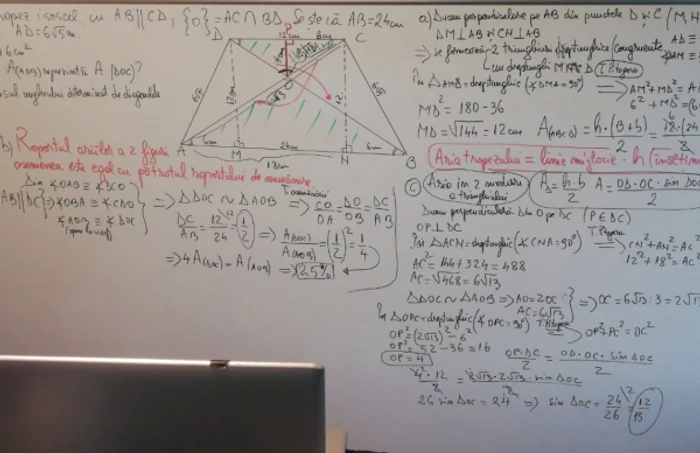 opez isoscel, cu AB||CD, {O}=AC∩BD. Se știe că AB=24cm
AD=6√5 cm
6cm²
A(AOB) reprezintă A(DOC)?
sul unghiului determinat de diagonale
D 12cm 6cm C
6√5 12cm 12 6√5
O
A 6cm M 24cm N 6cm B
18cm
b) Raportul ariilor a 2 figuri
asemenea este egal cu pătratul raportului de asemănare
Din
AB||DC => ∢OAB ≡ ∢DCO
∢OBA ≡ ∢CDO
∢AOB ≡ ∢DOC
(opuse la vârf)
=> ΔDOC ~ ΔAOB => CO/OA = DO/OB = DC/AB
DC/AB = 12/24 = 1/2 => A(DOC)/A(AOB) = (1/2)² = 1/4
=> 4A(DOC) = A(AOB) => 25%
a) Ducem perpendiculare pe AB din punctele D și C (M, N
DM⊥AB și CN⊥AB
=> se formează 2 triunghiuri dreptunghice congruente
un dreptunghi
T. Pitagora
În ΔAMD = dreptunghic (∢DMA=90°) => AM²+MD²=A
6²+MD²=(6
MD² = 180-36
MD = √144 = 12cm A(ABCD) = h·(B+b)/2 = 12·(24
Aria trapezului = linie mijlocie · h (înălțim
c) Aria în 2 moduri a triunghiului
A = h·b/2 A = OD·OC·sin DO/2
Ducem perpendiculară din O pe DC (P∈DC)
OP⊥DC
În ΔACN = dreptunghic (∢CNA=90°) T.Pitagora => CN²+AN²=AC
12²+18²=AC
AC² = 144+324 = 488
AC = √468 = 6√13
ΔDOC ~ ΔAOB => AO=2OC
AC=6√13 => OC=6√13:3=2√1
În ΔOPC = dreptunghic (∢OPC=90°) T.Pitagora => OP²+PC²=OC²
OP² = (2√13)²-6²
OP² = 52-36=16
OP=4
OP·DC/2 = OD·OC·sin DOC/2
4·12/2 = 2√13·2√13·sin DOC/2
26 sin DOC = 24 => sin DOC = 24/26 = 12/13